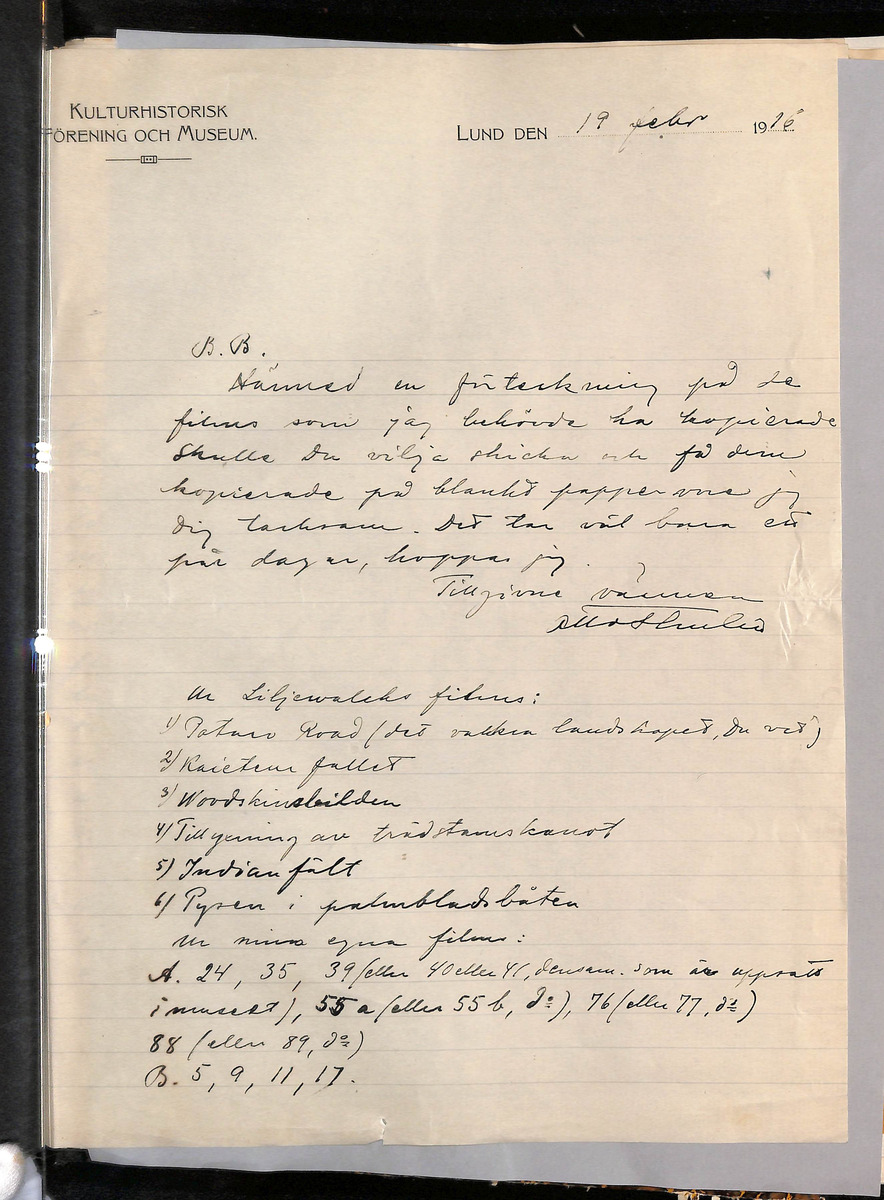 KULTURHISTORISK
FÖRENING OCH MUSEUM.
LUND DEN 19 febr 1916
B. B.
Härmed en förteckning på de
films som jag behövde ha kopierade
Skulle Du vilja skicka och få dem
kopierade på blankt papper vore jag
Dig tacksam. Det tar väl bara ett
par dagar, hoppas jag.
Tillgivne vännen
Ur Liljewalchs films:
1) Potaro Road (det vackra landskapet, Du vet)
2) Kaieteur fallet
3) Woodskinsbilden
4) Tillyxning av trädstamskanot
5) Indianfält
6) Pysen i palmbladsbåten
Ur mina egna films:
A. 24, 35, 39 (eller 40 eller 41, densam. som är uppsatt
i museet), 55 a (eller 55 b, do), 76 (eller 77, do)
88 (eller 89, do)
B. 5, 9, 11, 17.